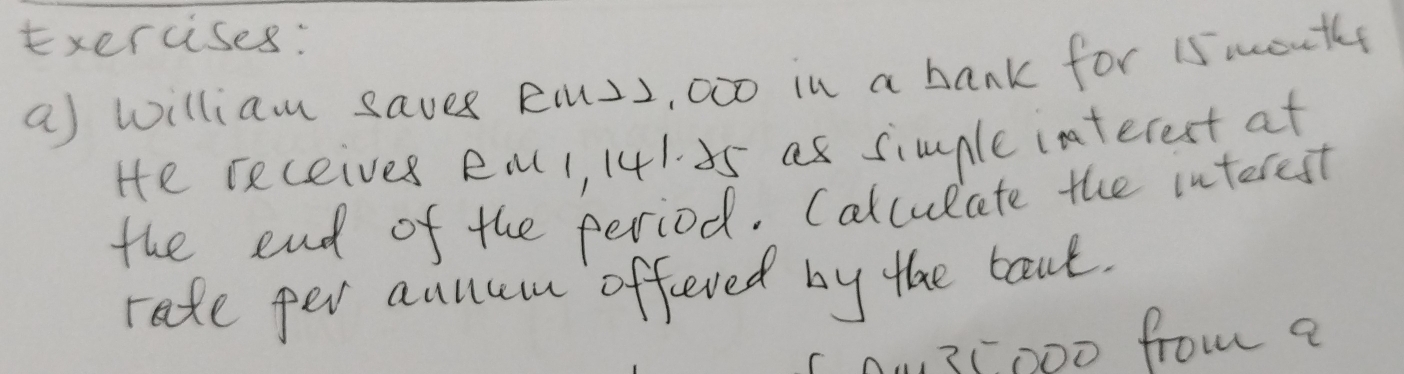 Exercises:
a) William saves RM22,000 in a bank for 15 months
He receives RM1,141.25 as simple interest at
the end of the period. Calculate the interest
rate per annum offered by the bank.
000 from a